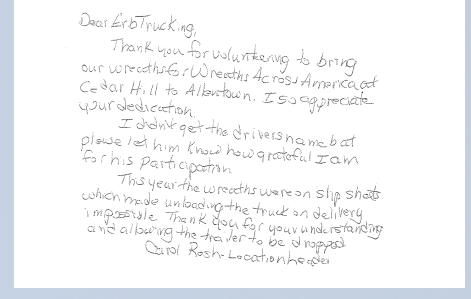 Dear Erb Trucking,
Thank you for voluntering to bring
our wreaths for Wreaths Across America at
Cedar Hill to Allentown. I so appreciate
your dedication.
I didn't get the drivers name but
please let him know how grateful I am
for his participation
This year the wreaths were on slip sheets
which made unloading the truck on delivery
impossible Thank you for your understanding
and allowing the trailer to be dropped
Carol Rosh-Location header